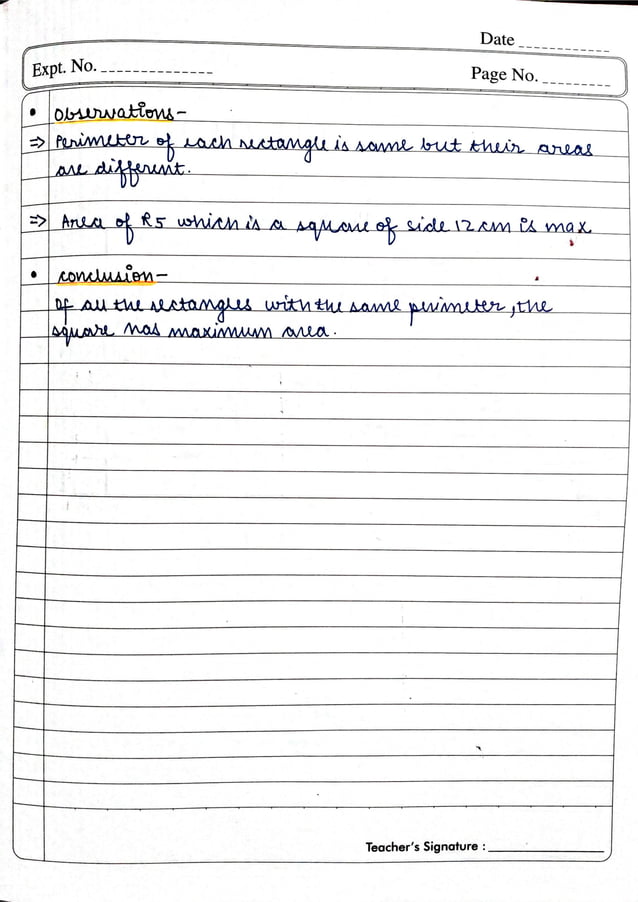 Date
Expt. No.
Page No.
• Observations-
⇒ Perimeter of each rectangle is same but their areas
are different.
⇒ Area of R5 which is a square of side 12 cm is max
• Conclusion-
Of all the rectangles with the same perimeter, the
square has maximum area.
Teacher's Signature :